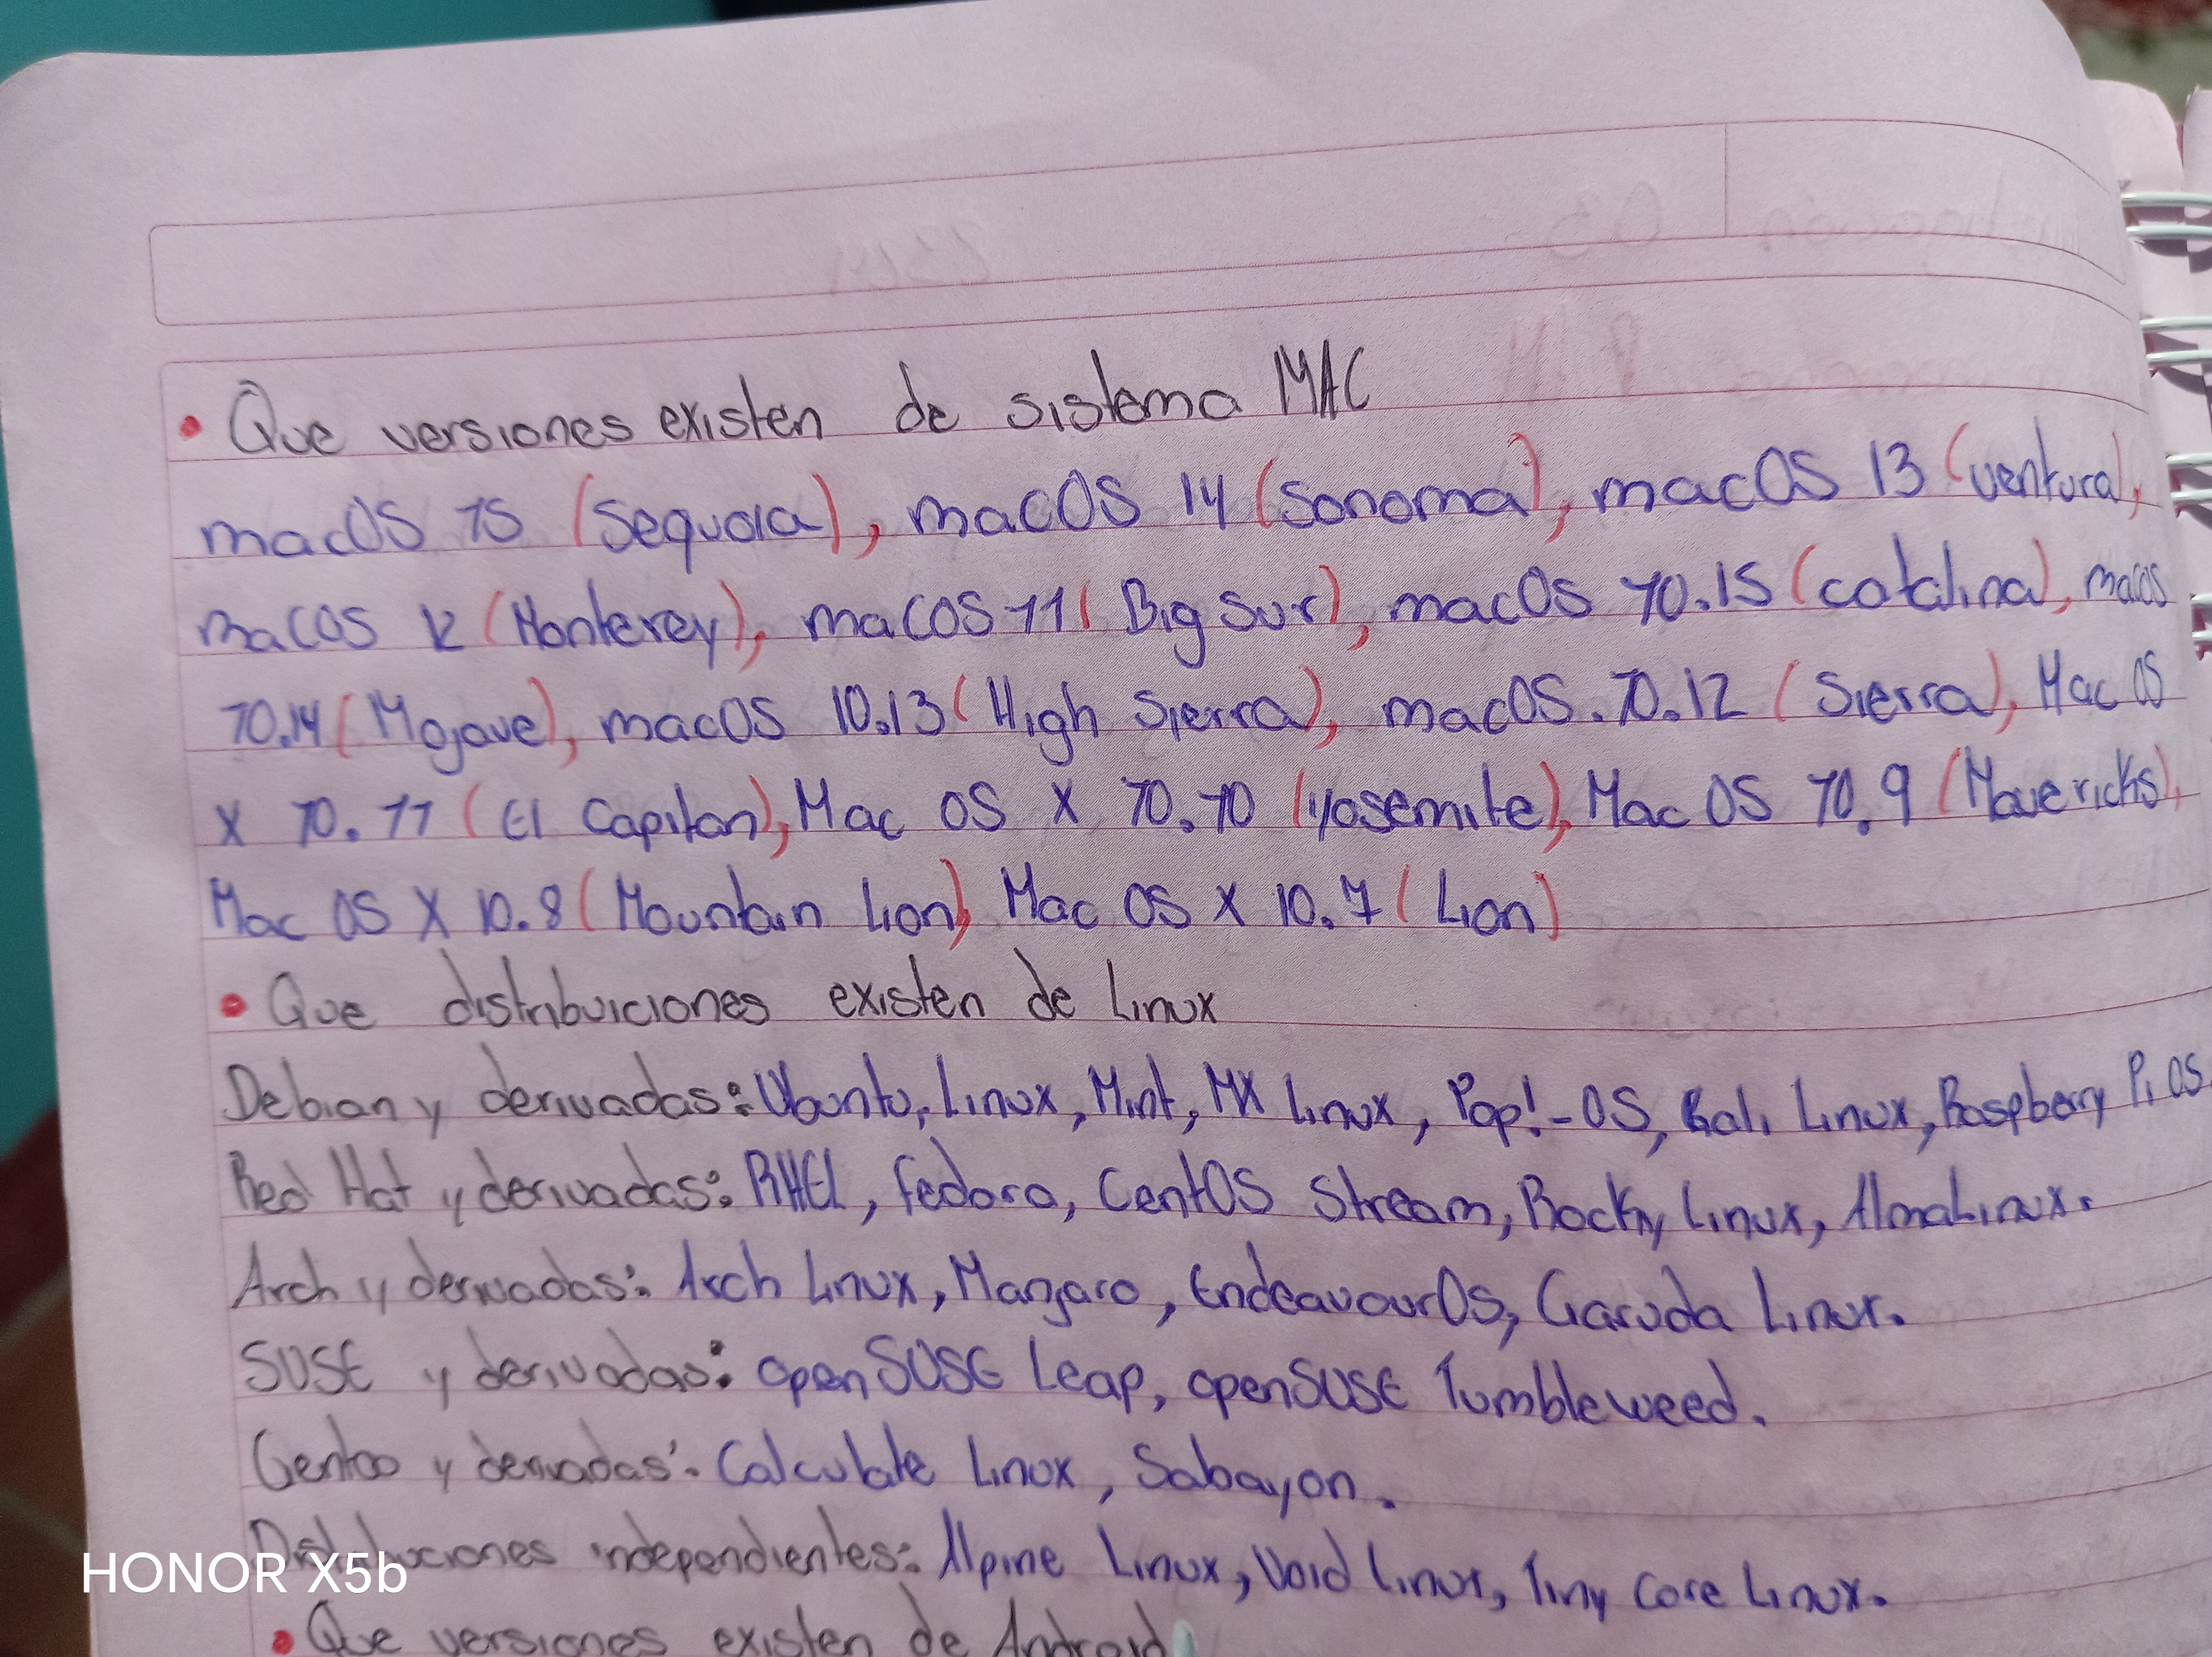 • Que versiones existen de sistema MAC
macOS 15 (Sequoia), macOS 14 (Sonoma), macOS 13 (ventura),
macOS 12 (Monterey), macOS 11 (Big Sur), macOS 10.15 (catalina), macOS
10.14 (Mojave), macOS 10.13 (High Sierra), macOS. 10.12 (Sierra), Mac OS
X 10.11 (El Capitan), Mac OS X 10.10 (yosemite), Mac OS 10.9 (Mavericks),
Mac OS X 10.8 (Mountain Lion), Mac OS X 10.7 (Lion)
• Que distribuiciones existen de Linux
Debian y derivadas: Ubuntu, Linux, Mint, MX Linux, Pop!-OS, Kali Linux, Raspberry Pi OS
Red Hat y derivadas: RHEL, Fedora, CentOS Stream, Rocky Linux, AlmaLinux.
Arch y derivadas: Arch Linux, Manjaro, EndeavourOS, Garuda Linux.
SUSE y derivadas: openSUSE Leap, openSUSE Tumbleweed.
Gentoo y derivadas: Calculate Linux, Sabayon.
Distribuciones independientes: Alpine Linux, Void Linux, Tiny Core Linux.
• Que versiones existen de Android
HONOR X5b